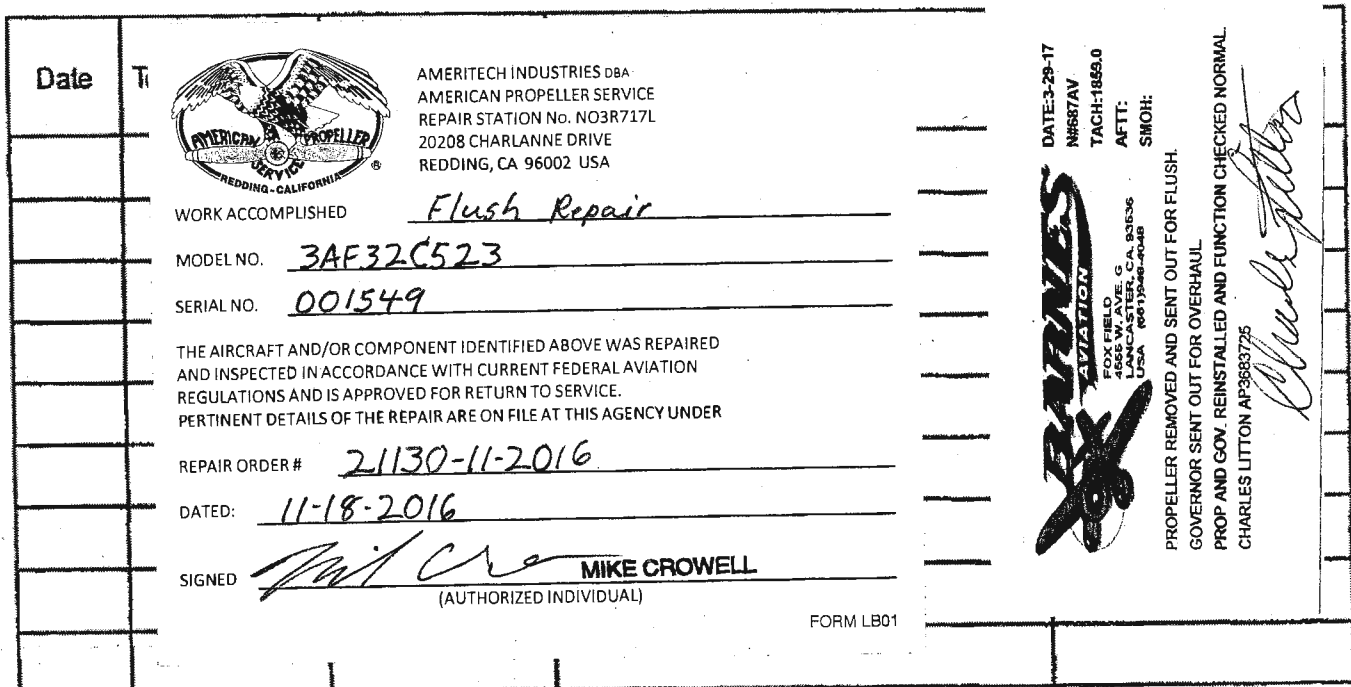 Date
AMERICAN PROPELLER
SERVICE
REDDING-CALIFORNIA
®
AMERITECH INDUSTRIES DBA
AMERICAN PROPELLER SERVICE
REPAIR STATION No. NO3R717L
20208 CHARLANNE DRIVE
REDDING, CA 96002 USA
WORK ACCOMPLISHED Flush Repair
MODEL NO. 3AF32C523
SERIAL NO. 001549
THE AIRCRAFT AND/OR COMPONENT IDENTIFIED ABOVE WAS REPAIRED
AND INSPECTED IN ACCORDANCE WITH CURRENT FEDERAL AVIATION
REGULATIONS AND IS APPROVED FOR RETURN TO SERVICE.
PERTINENT DETAILS OF THE REPAIR ARE ON FILE AT THIS AGENCY UNDER
REPAIR ORDER # 21130-11-2016
DATED: 11-18-2016
SIGNED MIKE CROWELL
(AUTHORIZED INDIVIDUAL)
FORM LB01
BARNES
AVIATION
FOX FIELD
4555 W. AVE. G
LANCASTER, CA. 93536
USA (661)948-4048
DATE:3-29-17
N#687AV
TACH:1859.0
AFTT:
SMOH:
PROPELLER REMOVED AND SENT OUT FOR FLUSH.
GOVERNOR SENT OUT FOR OVERHAUL.
PROP AND GOV. REINSTALLED AND FUNCTION CHECKED NORMAL.
CHARLES LITTON AP3683725
Charles Litton